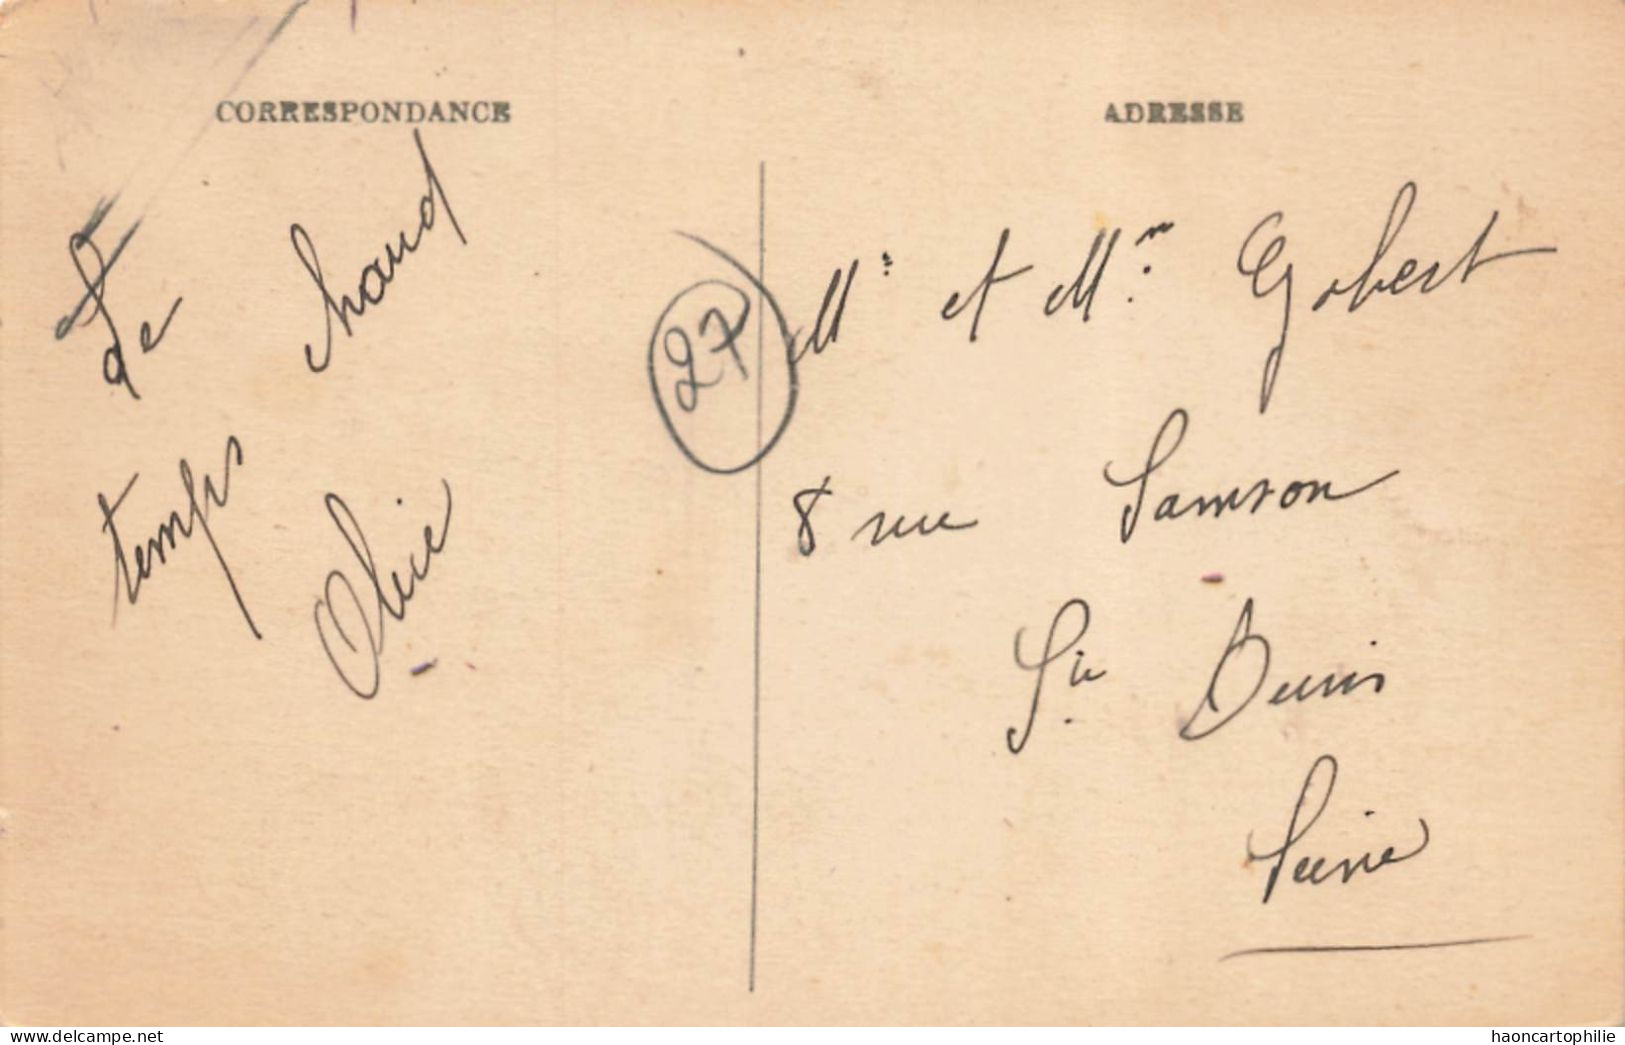 CORRESPONDANCE
Le chaud
temps
ADRESSE
27
Mr et Mm Gobert
8 rue Samson
St Denis
Seine
www.delcampe.net
haoncartophilie